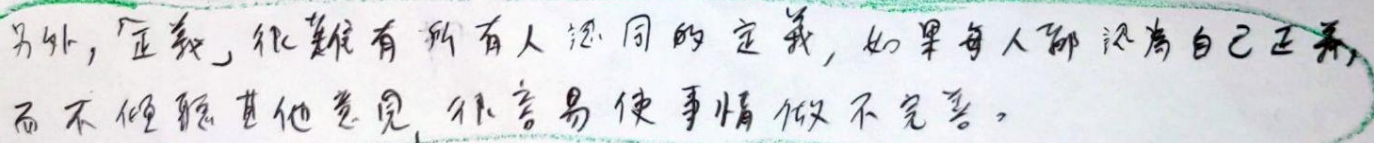 另外,「正義」很難有所有人認同的定義,如果每人都認為自己正義,
而不傾聽其他意見,很容易使事情做不完善。